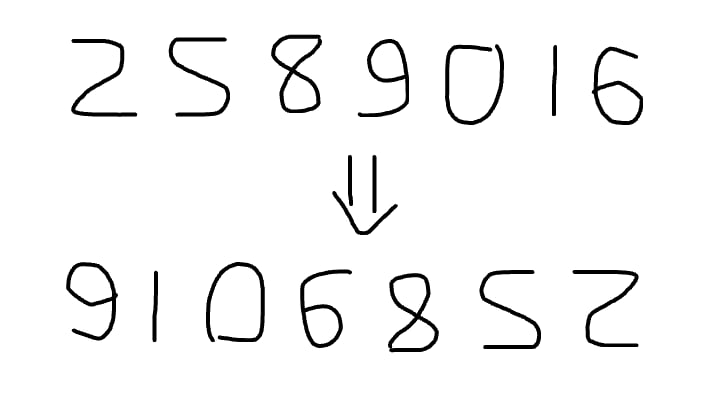 2589016
⇓
9106852